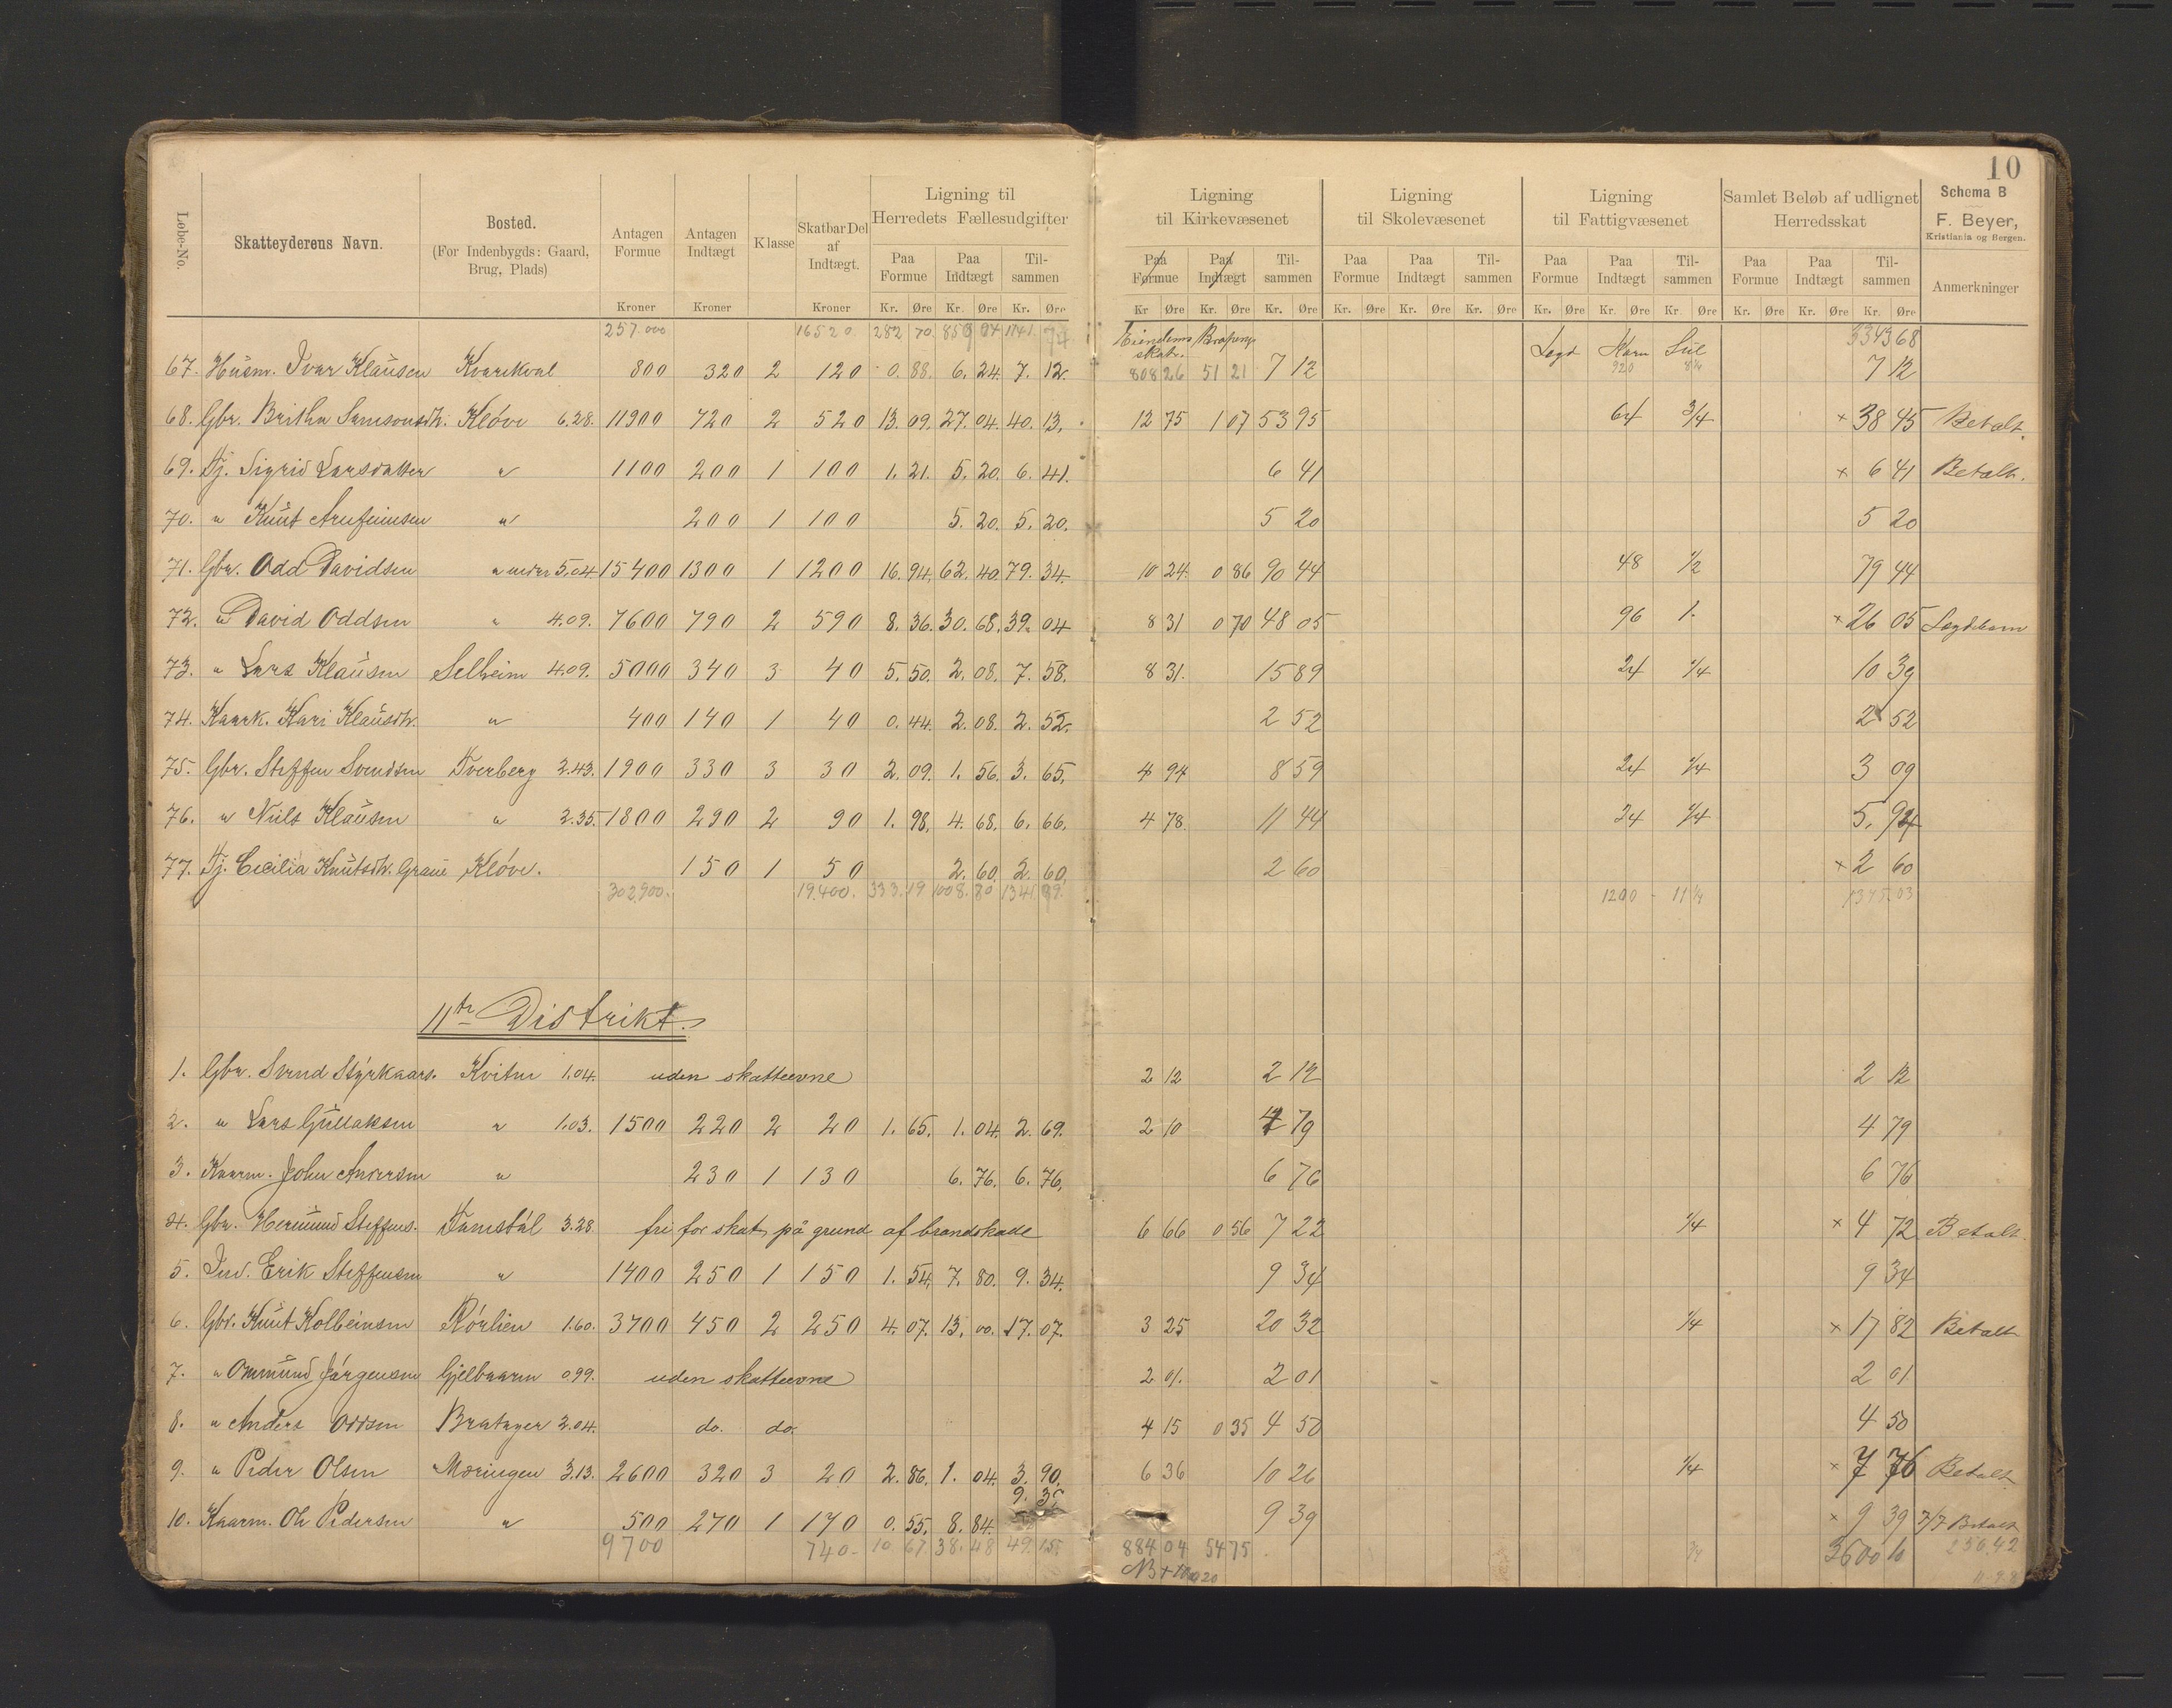 10
Løbe-No.
Skatteyderens Navn.
Bosted.
(For Indenbygds: Gaard, Brug, Plads)
Antagen Formue
Antagen Indtægt
Klasse
Skatbar Del af Indtægt.
Ligning til Herredets Fællesudgifter
Ligning til Kirkevæsenet
Ligning til Skolevæsenet
Ligning til Fattigvæsenet
Samlet Beløb af udlignet Herredsskat
Schema B
F. Beyer,
Kristiania og Bergen.
Paa Formue Paa Indtægt Til-sammen Paa Formue Paa Indtægt Til-sammen Paa Formue Paa Indtægt Til-sammen Paa Formue Paa Indtægt Til-sammen Paa Formue Paa Indtægt Til-sammen Anmerkninger
Kroner Kroner Kroner Kr. Øre Kr. Øre Kr. Øre Kr Øre Kr. Øre Kr. Øre Kr. Øre Kr. Øre Kr. Øre Kr. Øre Kr. Øre Kr. Øre Kr. Øre Kr. Øre Kr. Øre
257.000 16520 282 70 859 04 1141 74 Eiendoms skat. Lægd Korn 3343 68
67. Husm. Ivar Klausen Kvarekval 800 320 2 120 0.88. 6.24. 7.12. 808 26 51 21 7 12 920 7 12
68. Gbr. Britha Samsonsdtr. Kløve 6.28. 11900 720 2 520 13.09. 27.04. 40.13. 12 75 1 07 53 95 64 3/4 × 38 45 Betalt.
69. Tj. Sigrid Larsdatter " 1100 200 1 100 1.21. 5.20. 6.41. 6 41 × 6 41 Betalt.
70. " Knut Arnfeinsen " 200 1 100 5.20. 5.20. 5 20 5 20
71. Gbr. Odd Davidsen " 5.04 15400 1300 1 1200 16.94. 62.40 79.34. 10 24. 0 86 90 44 48 1/2 79 44
72. " David Oddsen " 4.09. 7600 790 2 590 8.36. 30.68. 39.04 8 31 0 70 48 05 96 1. × 26 05 Lægdskorn
73. " Lars Klausen Selheim 4.09. 5000 340 3 40 5.50. 2.08. 7.58. 8 31. 15 89 24 1/4 10 39
74. Kaark. Kari Klausdtr. " 400 140 1 40 0.44. 2.08. 2.52. 2 52 2 52
75. Gbr. Steffen Svendsen Tverberg 2.43. 1900 330 3 30 2.09. 1.56. 3.65. 4 94 8 59 24 1/4 3 09
76. " Nils Klausen " 2.35. 1800 290 2 90 1.98. 4.68. 6.66. 4 78. 11 44 24 1/4 5.94
77. Tj. Cecilia Knutsdtr. Graue Kløve. 150 1 50 2.60. 2.60. 2 60 × 2 60
302,900. 19.400. 333.19 1008.80 1341.99. 1200 - 11 1/4 1375.03
11te Distrikt.
1. Gbr. Svend Styrkaars. Kvitne 1.04. uden skatteevne 2 12 2 12 2 12
2. " Lars Gullaksen " 1.03. 1500 220 2 20 1.65. 1.04. 2.69. 2 10 4 79 4 79
3. Kaarm. John Andersen " 230 1 130 6.76. 6.76. 6 76 6 76
4. Gbr. Hermund Steffens. 3.28 fri for skat på grund af brandskade 6 66 0 56 7 22 1/4 × 4 72 Betalt.
5. Ind. Erik Steffensen " 1400 250 1 150 1.54. 7.80. 9.34. 9 34 9 34
6. Gbr. Knut Kolbeinsen Rørlien 1.60. 3700 450 2 250 4.07. 13.00. 17.07. 3 25 20 32 1/4 × 17 82 Betalt
7. " Ommund Jørgensen 0.99. uden skatteevne 2 01. 2 01 2 01
8. " Anders Oddsen Bratager 2.04. do. do. 4 15 0 35 4 50 4 50
9. " Peder Olsen Møringen 3.13. 2600 320 3 20 2.86. 1.04. 3.90. 6 36 10 26 1/4 × 7 76 Betalt
10. Kaarm. Ole Pedersen " 500 270 1 170 0.55. 8.84. 9.39 9 39 × 9 39 7/7 Betalt
9700 740- 10.67. 38.48 49.15. 884 04 54 75 3/4 3600 10 256.42